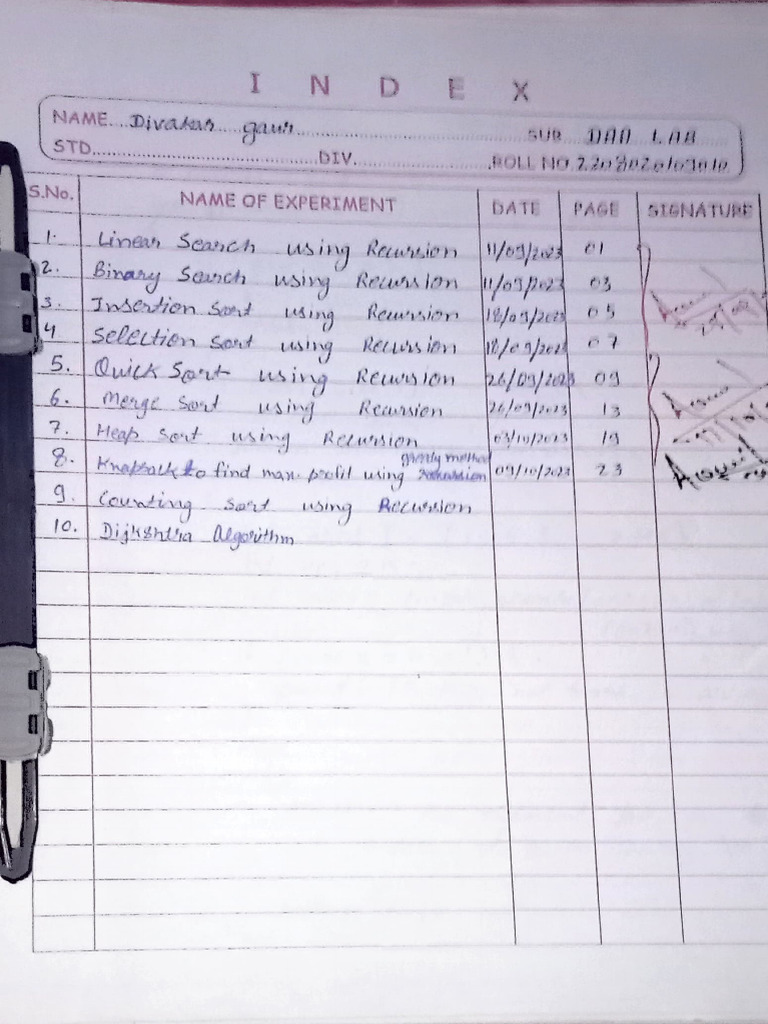 INDEX
NAME....Divakar gaur.... SUB DAA LAB
STD.... DIV.... ROLL NO
S.No. NAME OF EXPERIMENT DATE PAGE SIGNATURE
1. Linear Search using Recursion 11/09/2023 01
2. Binary Search using Recursion 11/09/2023 03
3. Insertion Sort using Recursion 18/09/2023 05
4 Selection Sort using Recursion 18/09/2023 07
5. Quick Sort using Recursion 26/09/2023 09
6. Merge Sort using Recursion 26/09/2023 13
7. Heap Sort using Recursion 03/10/2023 19
greedy method
8. Knapsack to find max. profit using 09/10/2023 23
9. Counting Sort using Recursion
10. Dijkshtra Algorithm